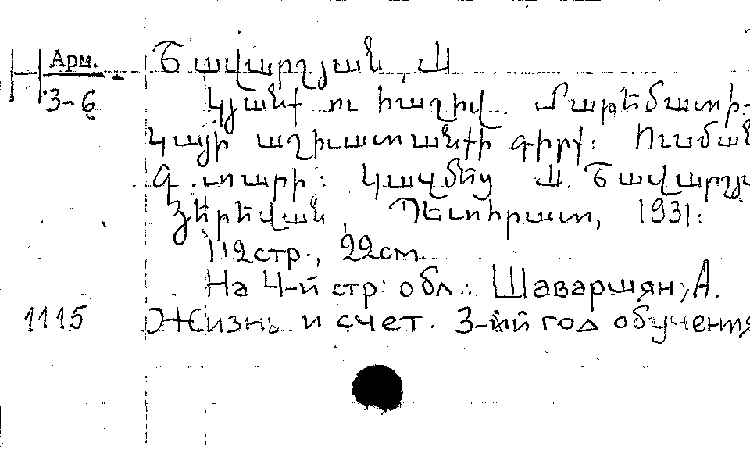 Арм.
3-6
Շավարշյան, Ա
Կյանք ու հաշիվ. Մաթեմատի-
կայի աշխատանքի գիրք: Ուսման
Գ. տարի: Կազմեց Ա. Շավարշյ
Յերեվան, Պետհրատ, 1931:
112стр., 22см
На 4-й стр. обл.: Шаваршян, А.
1115 Жизнь и счет. 3-ий год обучения